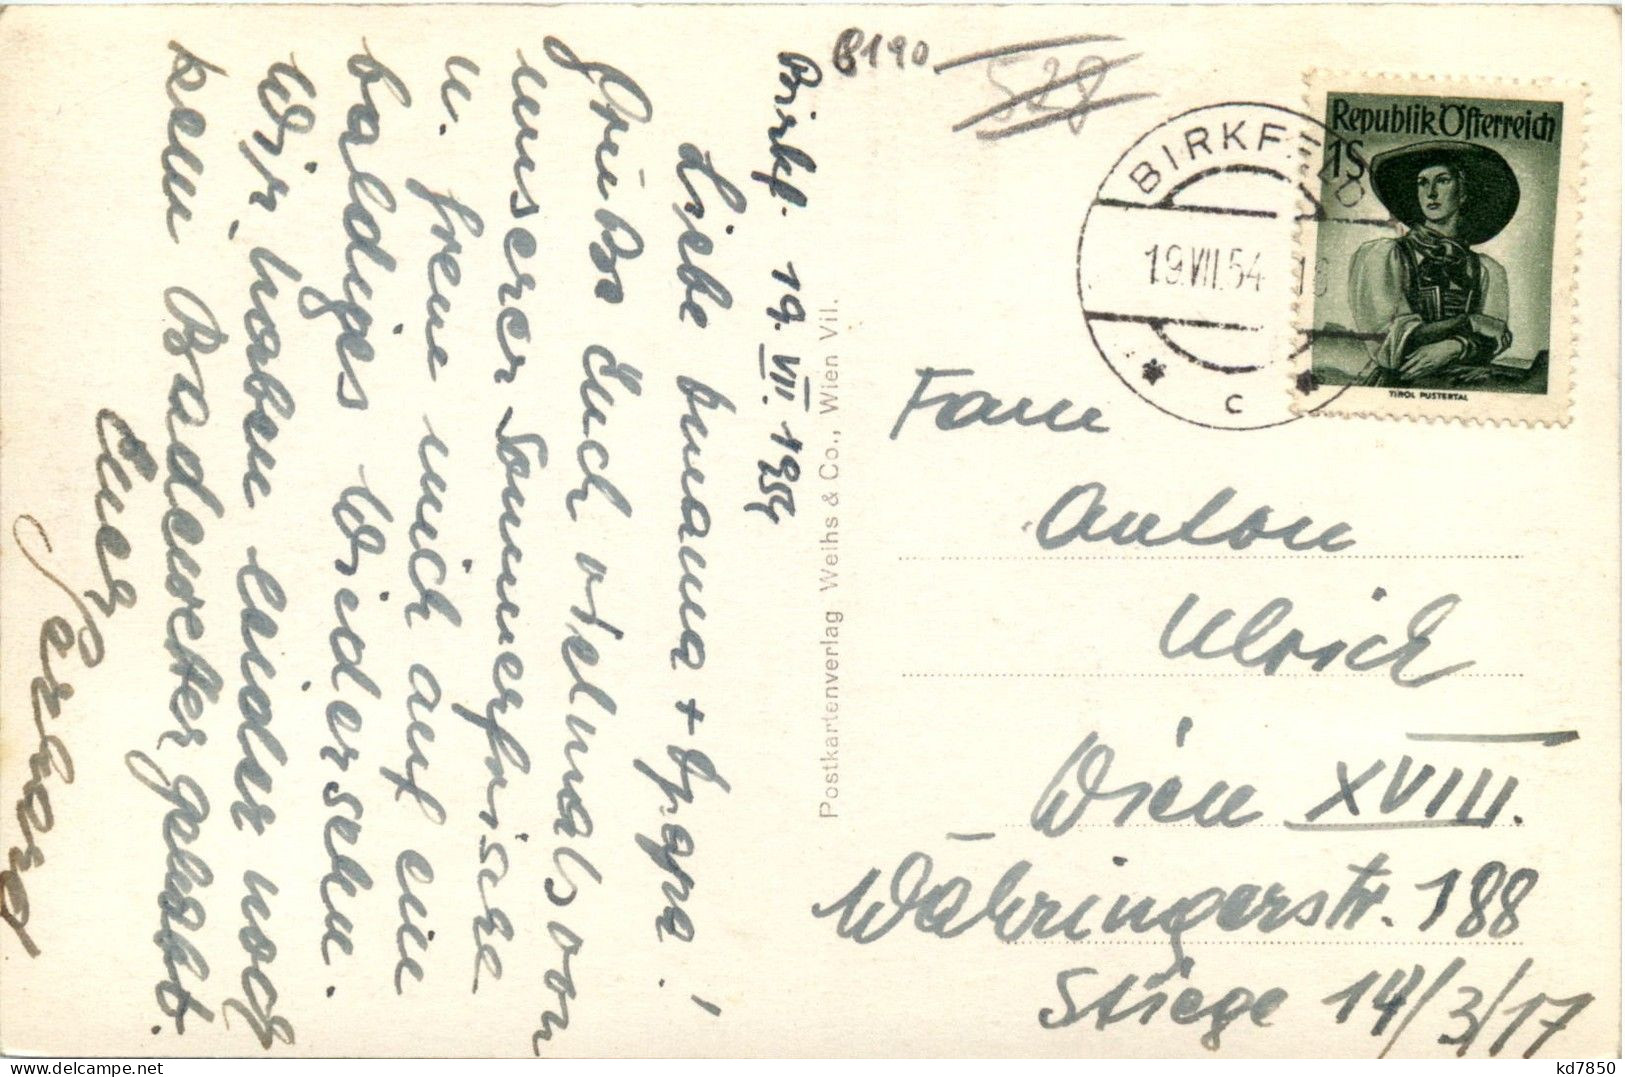 B190
528
Birkf. 19. VII. 1954
Liebe Omama + Opapa!
Grüße Euch vielmals von
unserer Sommerfrische
u. freue mich auf ein
baldiges Wiedersehen.
Wir haben leider noch
kein Badewetter gehabt.
Euer
Gerhard
Postkartenverlag Weihs & Co., Wien VII.
BIRKFELD
19.VII.54 18
C
Republik Österreich
1S
TIROL PUSTERTAL
Fam
Anton
Ulrich
Wien XVIII.
Währingerstr. 188
Stiege 14/3/17
kd7850